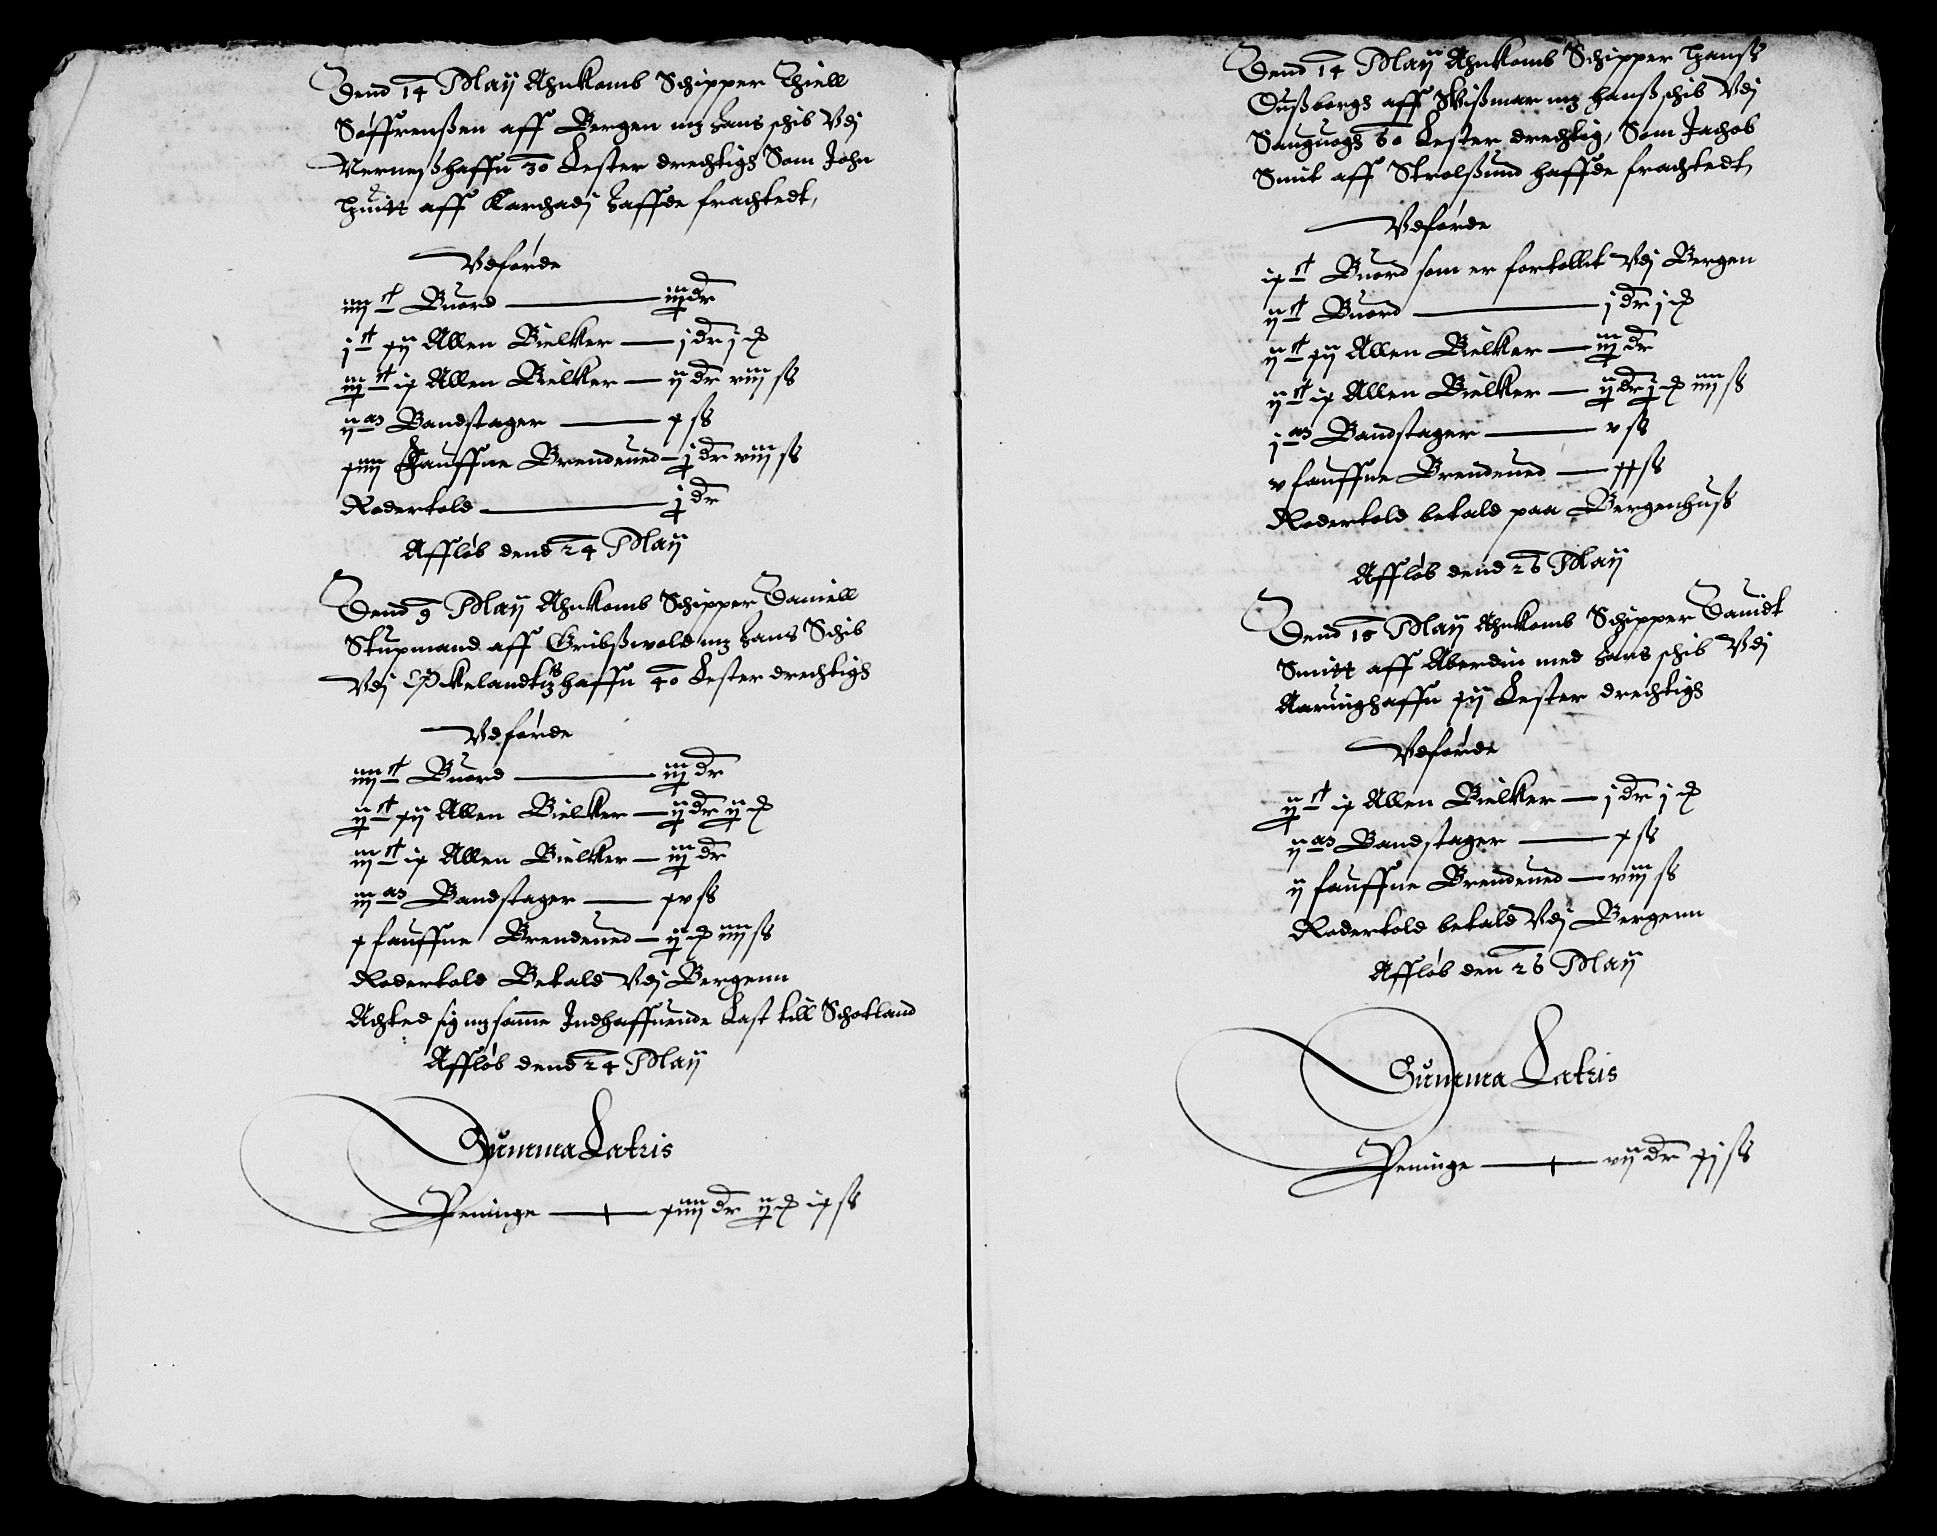 Dend 14 Maij Ahnkomb Schipper Thiell
Søffrenßen aff Bergen mz hans schib Vdj
Nerneßhaffn 30 Lester drechtigh Som John
Huitt aff Karchadj haffde frachtedt,
Vdførde
iiij ct Buord — iij dr
j ct xij Allen Bielker — j dr j
iij ct ix Allen Bielker — ij dr viij ß
ij Bandstager — x ß
xiiij fauffne Brendeued — j dr viij ß
Rodertold — j dr
Affløb dend 24 Maij
Dend 9 Maij Ahnkomb Schipper Daniell
Stupmand aff Gribßwold mz hans Schib
Vdj haffn 40 Lester drechtigh
Vdførde
iiij ct Buord — iij dr
ij ct xij Allen Bielker — ij dr ij
iij ct ix Allen Bielker — iij dr
iij Bandstager — xv ß
x fauffne Brendeued — ij iiij ß
Rodertold Betald Vdj Bergenn
Achted sig mz samme Indhaffuende Last till Schotland
Affløb dend 24 Maij
Summa Latris
Peninge — xiiij dr ij ix ß
Dend 14 Maij Ahnkomb Schipper Hanß
Dußborgh aff Wißmar mz hanß schib Vdj
Sauguogh 60 Lester drechtig, Som Jachob
Smit aff Strolßund haffde frachtedt,
Vdførde
ix ct Buord som er fortollit Vdj Bergen
ij ct Buord — j dr j
ij ct xij Allen Bielker — iij dr
ij ct ix Allen Bielker — ij dr j iiij ß
j Bandstager — v ß
v fauffne Brendeued — xx ß
Rodertold betald paa Bergenhuß
Affløb dend 26 Maij
Dend 15 Maij Ahnkomb Schipper Dauidt
Smitt aff Aberdin med hans schib Vdj
Aaringhaffn xij Lester drechtigh
Vdførde
ij ct ix Allen Bielker — j dr j
ij Bandstager — x ß
ij fauffne Brendeued — viij ß
Rodertold betald Vdj Bergenn
Affløb den 26 Maij
Summa Latris
Peninge — vij dr xj ß